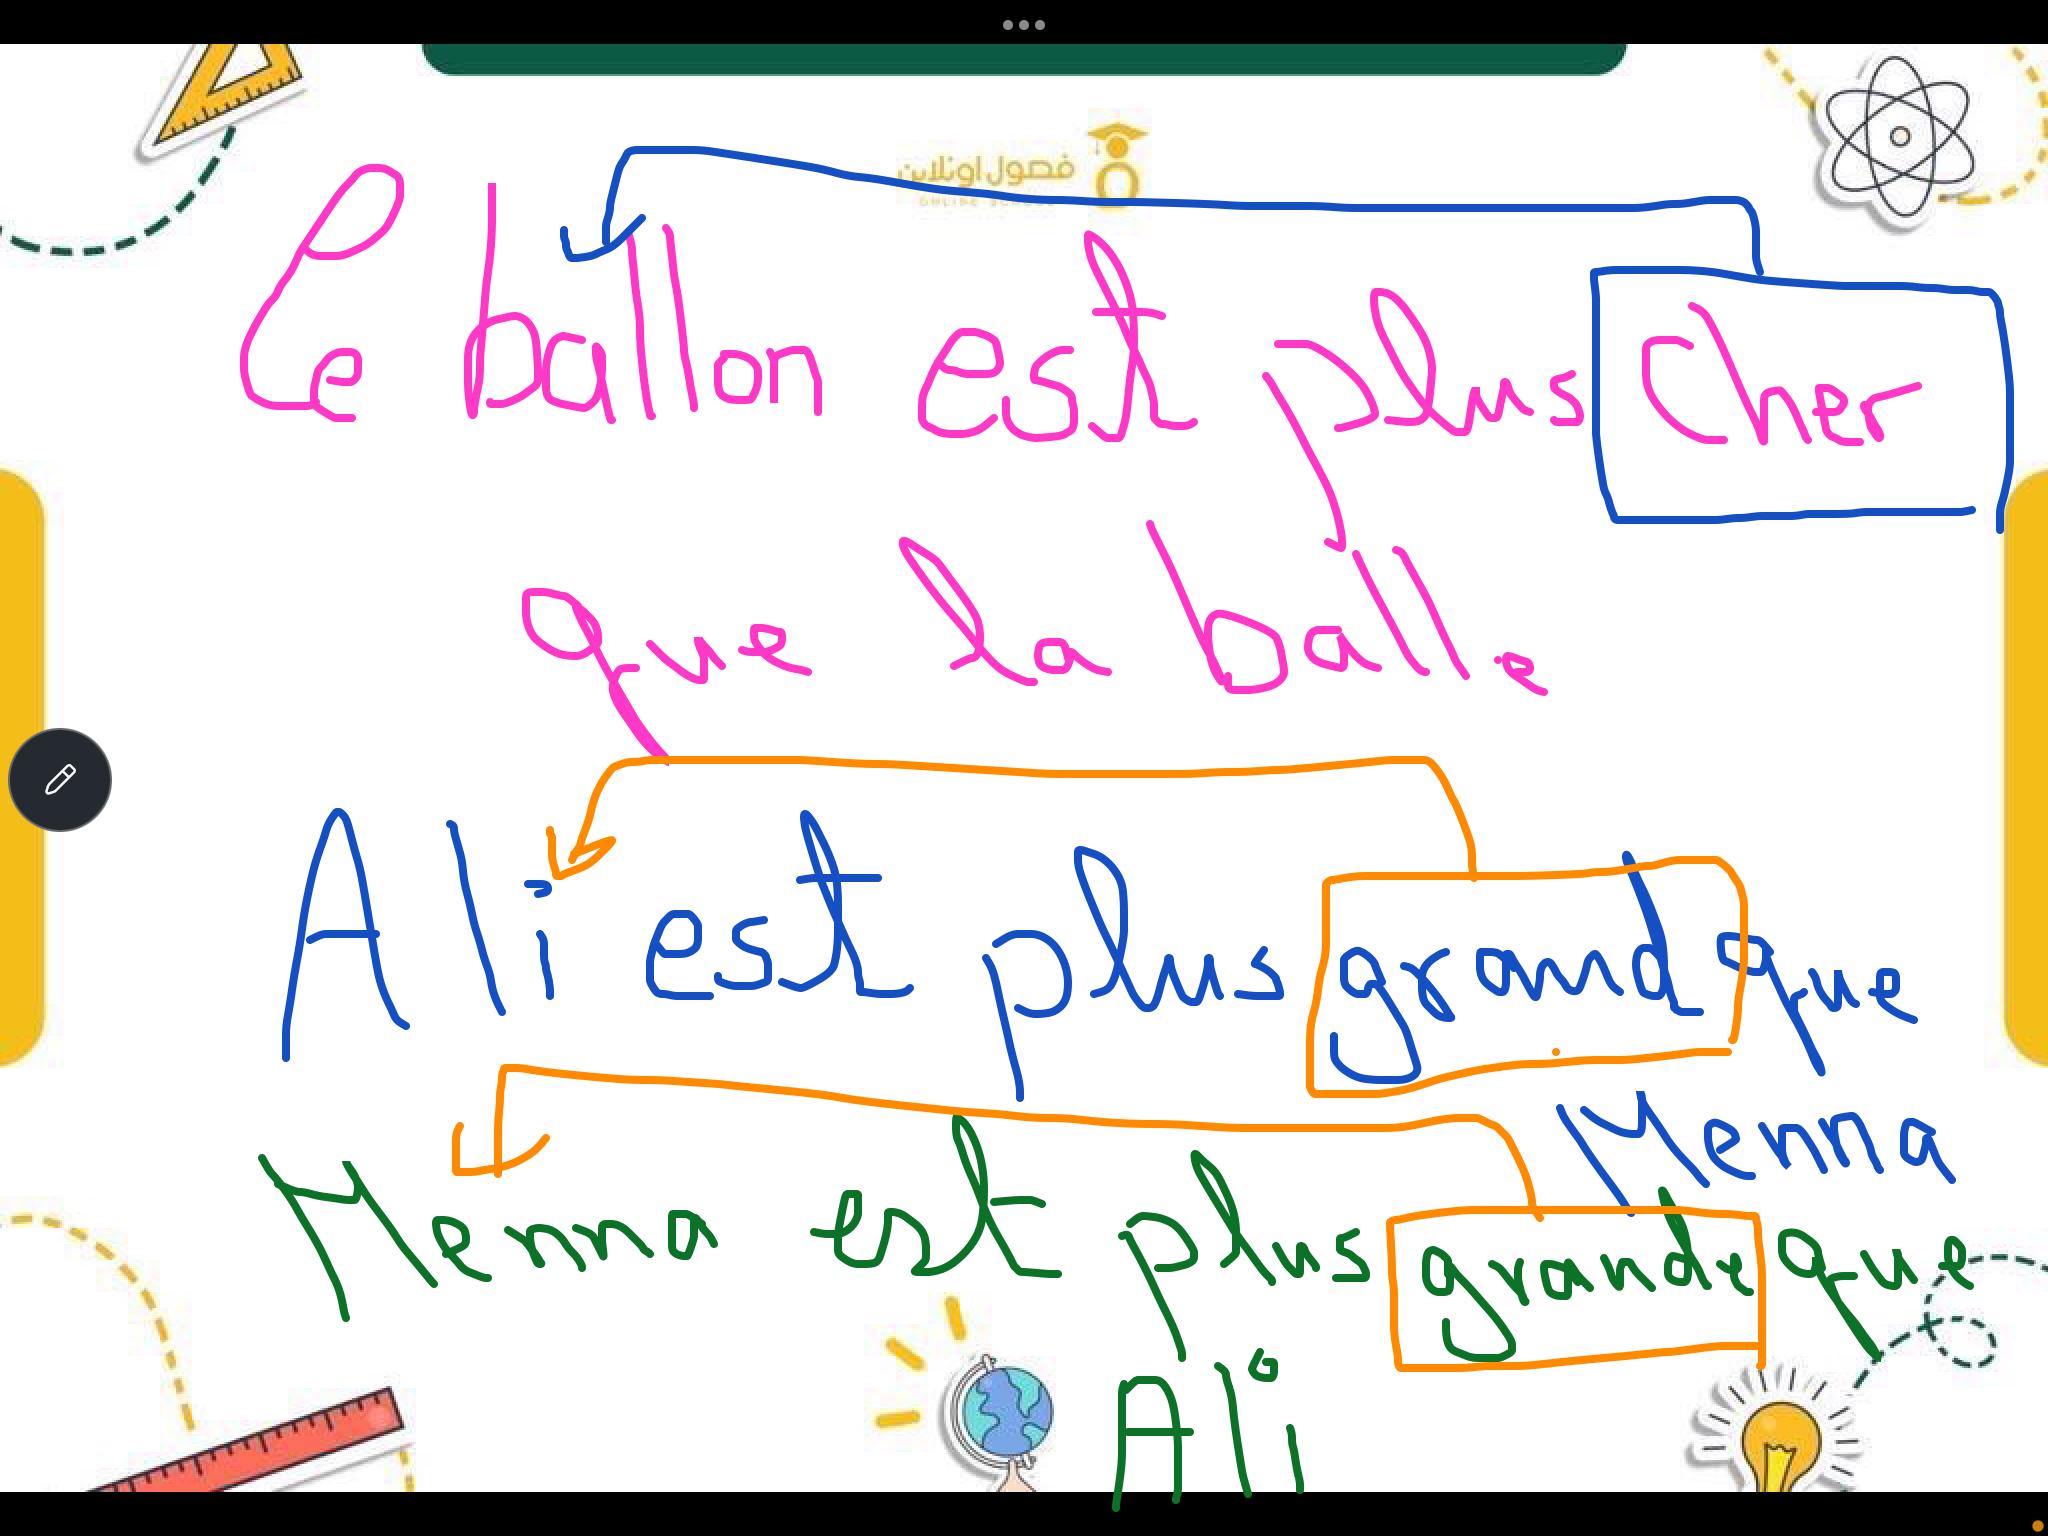 فصول اونلاين
ONLINE SCHOOL
Le ballon est plus cher
que la balle
Ali est plus grand que
Menna
Menna est plus grande que
Ali